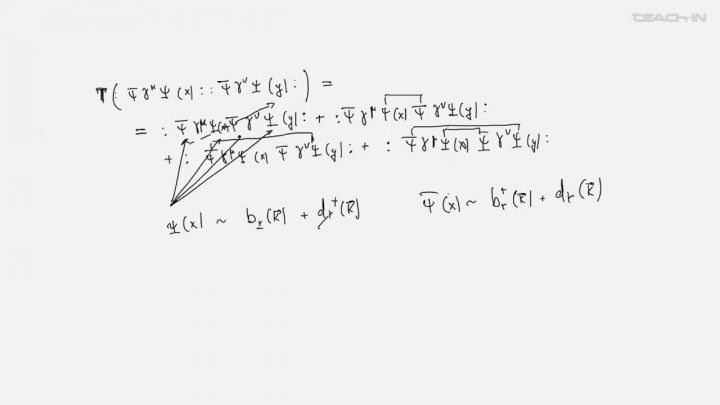 TEACH-IN
T ( : Ψ̄ γ^μ Ψ (x) : : Ψ̄ γ^ν Ψ (y) : ) =
= : Ψ̄ γ^μ Ψ(x) Ψ̄ γ^ν Ψ (y) : + : Ψ̄ γ^μ Ψ(x) Ψ̄ γ^ν Ψ(y) :
+ : Ψ̄ γ^μ Ψ (x) Ψ̄ γ^ν Ψ (y) : + : Ψ̄ γ^μ Ψ(x) Ψ̄ γ^ν Ψ(y) :
Ψ(x) ~ b_r(k̄) + d_r^+(k̄) Ψ̄ (x) ~ b_r^+(k̄) + d_r(k̄)